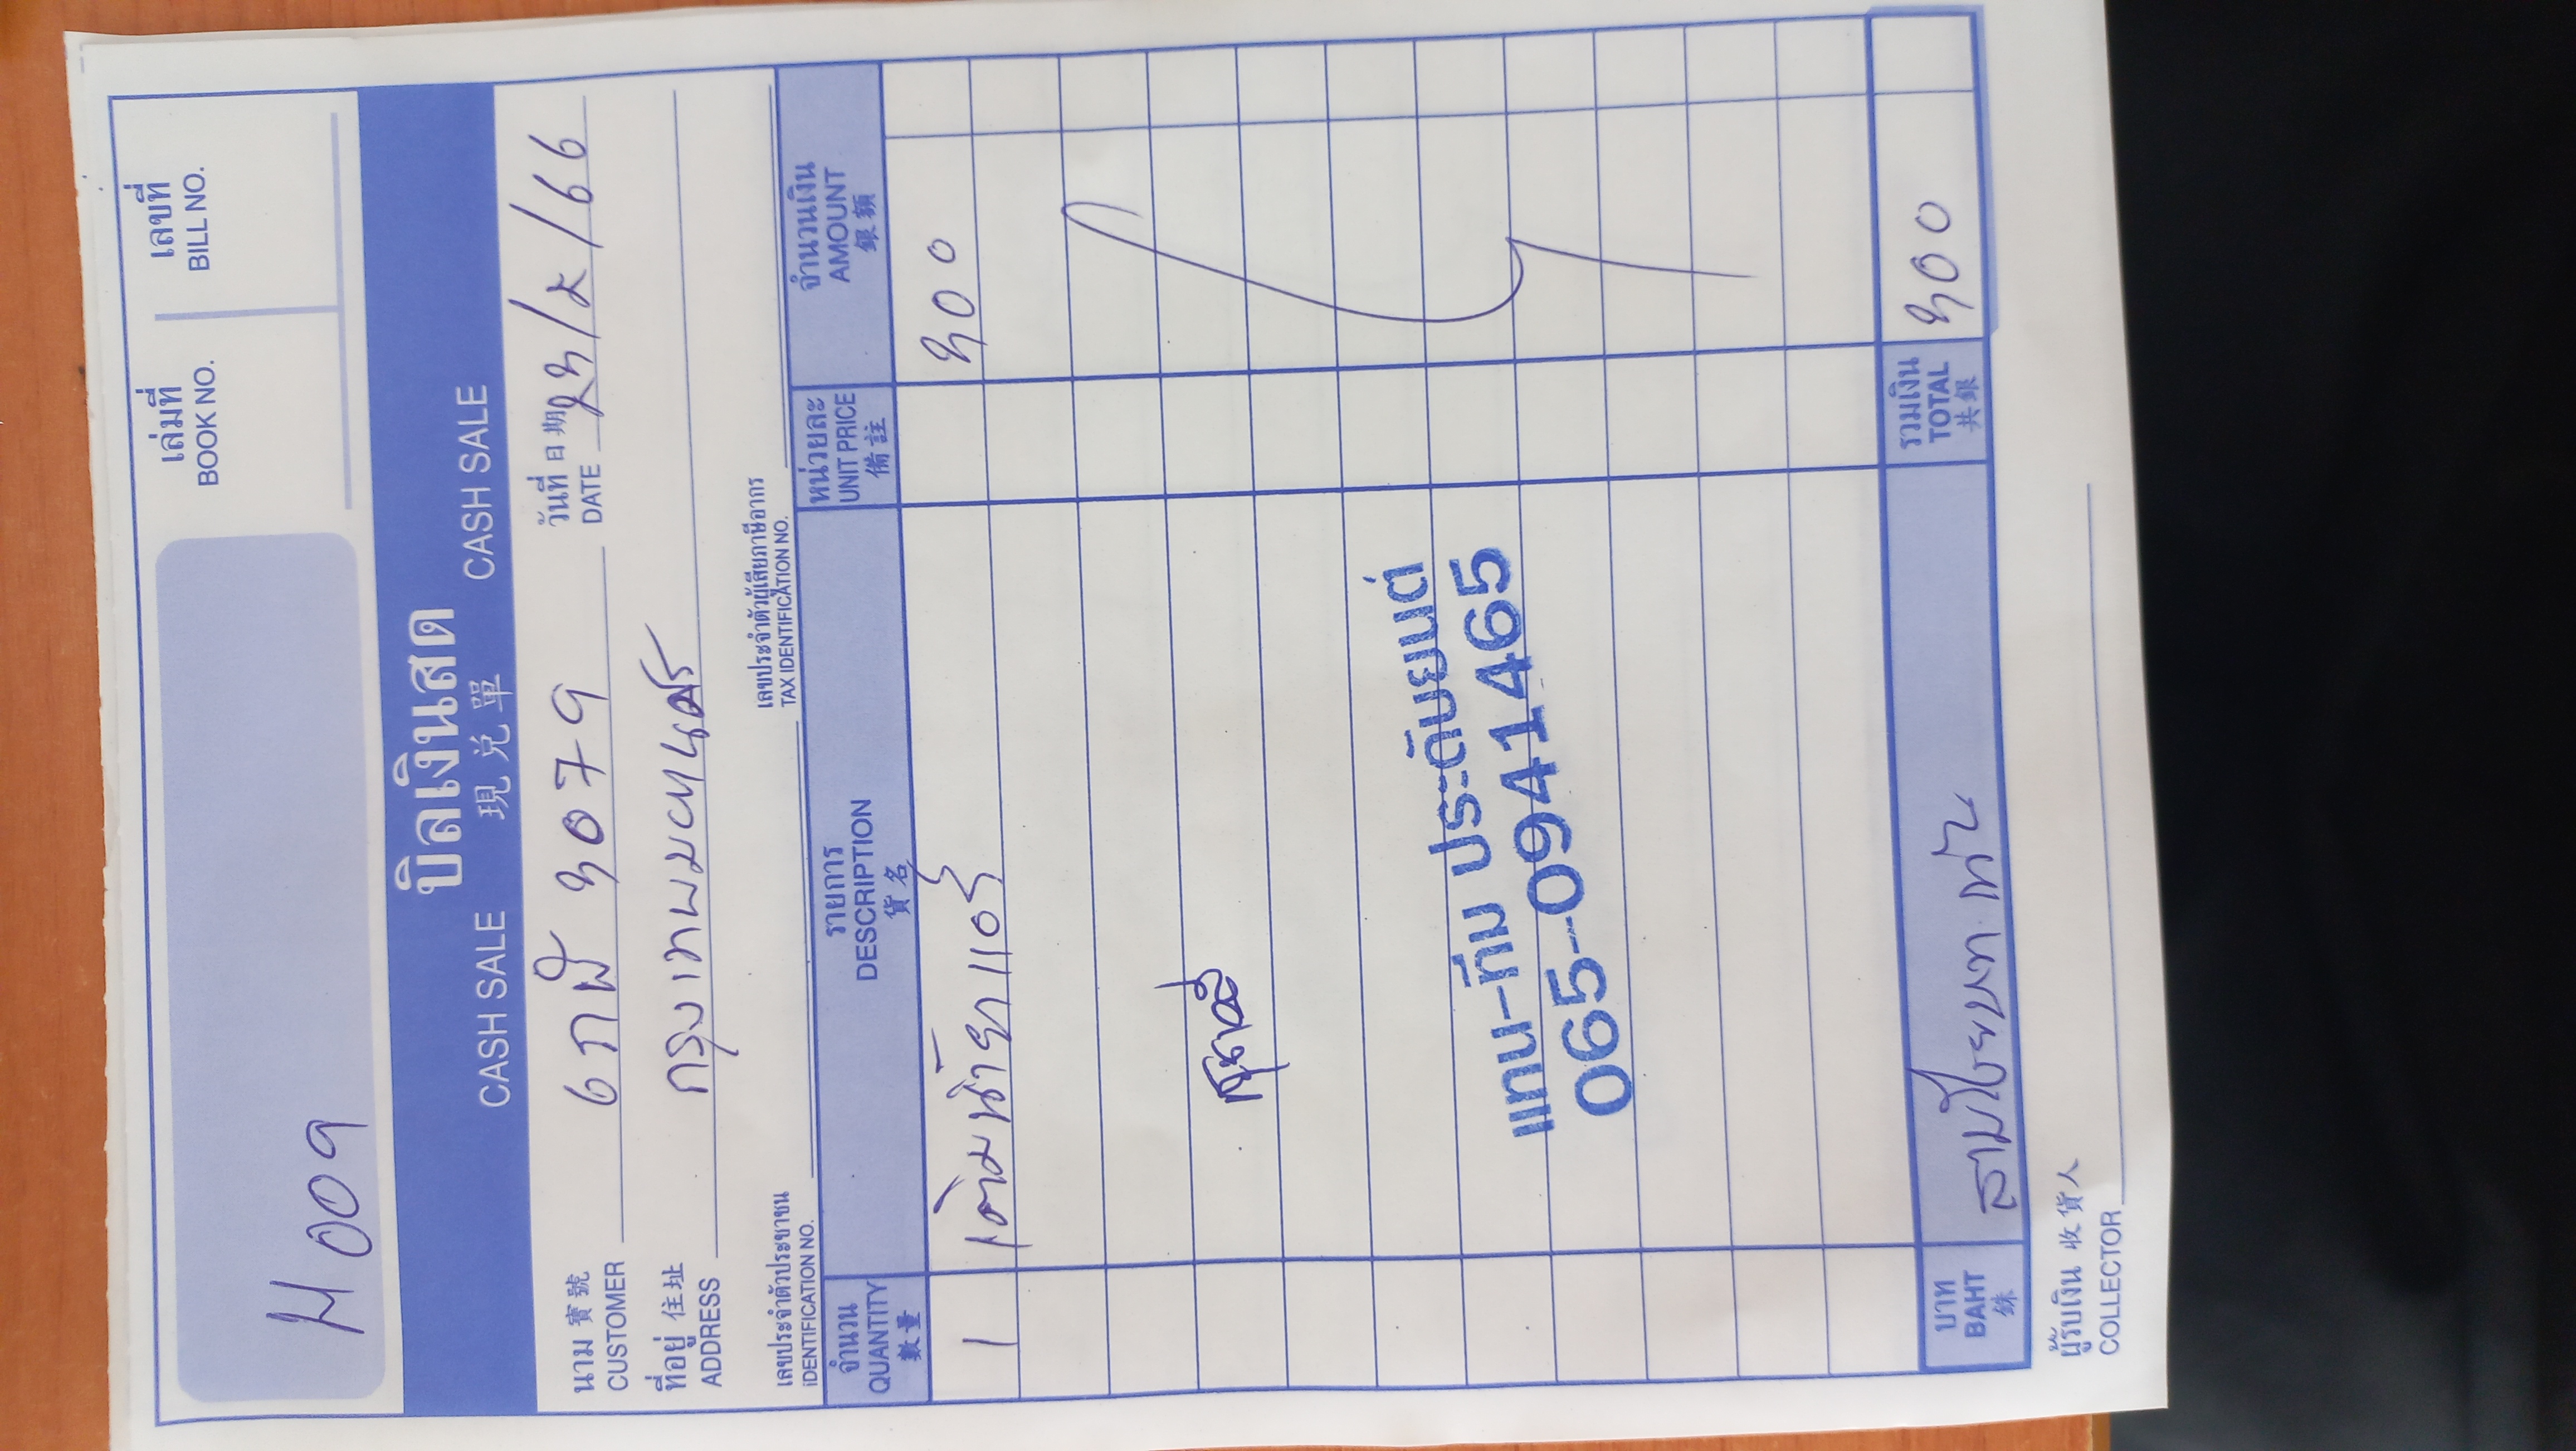 H009
เล่มที่ เลขที่
BOOK NO. BILL NO.
บิลเงินสด
CASH SALE 現兑單 CASH SALE
นาม 寶號 6 กฬ 3079 วันที่ 日期 23/2/66
CUSTOMER DATE
ที่อยู่ 住址 กรุงเทพมหานคร
ADDRESS
เลขประจำตัวประชาชน เลขประจำตัวผู้เสียภาษีอากร
IDENTIFICATION NO. TAX IDENTIFICATION NO.
จำนวน รายการ หน่วยละ จำนวนเงิน
QUANTITY DESCRIPTION UNIT PRICE AMOUNT
數量 貨名 備註 銀額
1 เติมน้ำยาแอร์ 300
แทน-ทีม ประดับยนต์
065-0941465
บาท สามร้อยบาทถ้วน รวมเงิน 300
BAHT TOTAL
銖 共銀
ผู้รับเงิน 收貨人
COLLECTOR